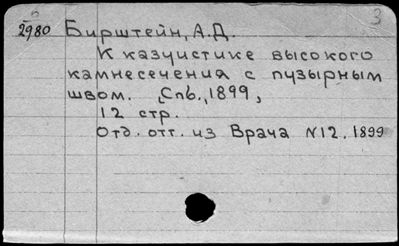 3
2980 Бирштейн, А.Д.
К казуистике высокого
камнесечения с пузырным
швом. Спб., 1899,
12 стр.
Отд. отт. из Врача №12. 1899